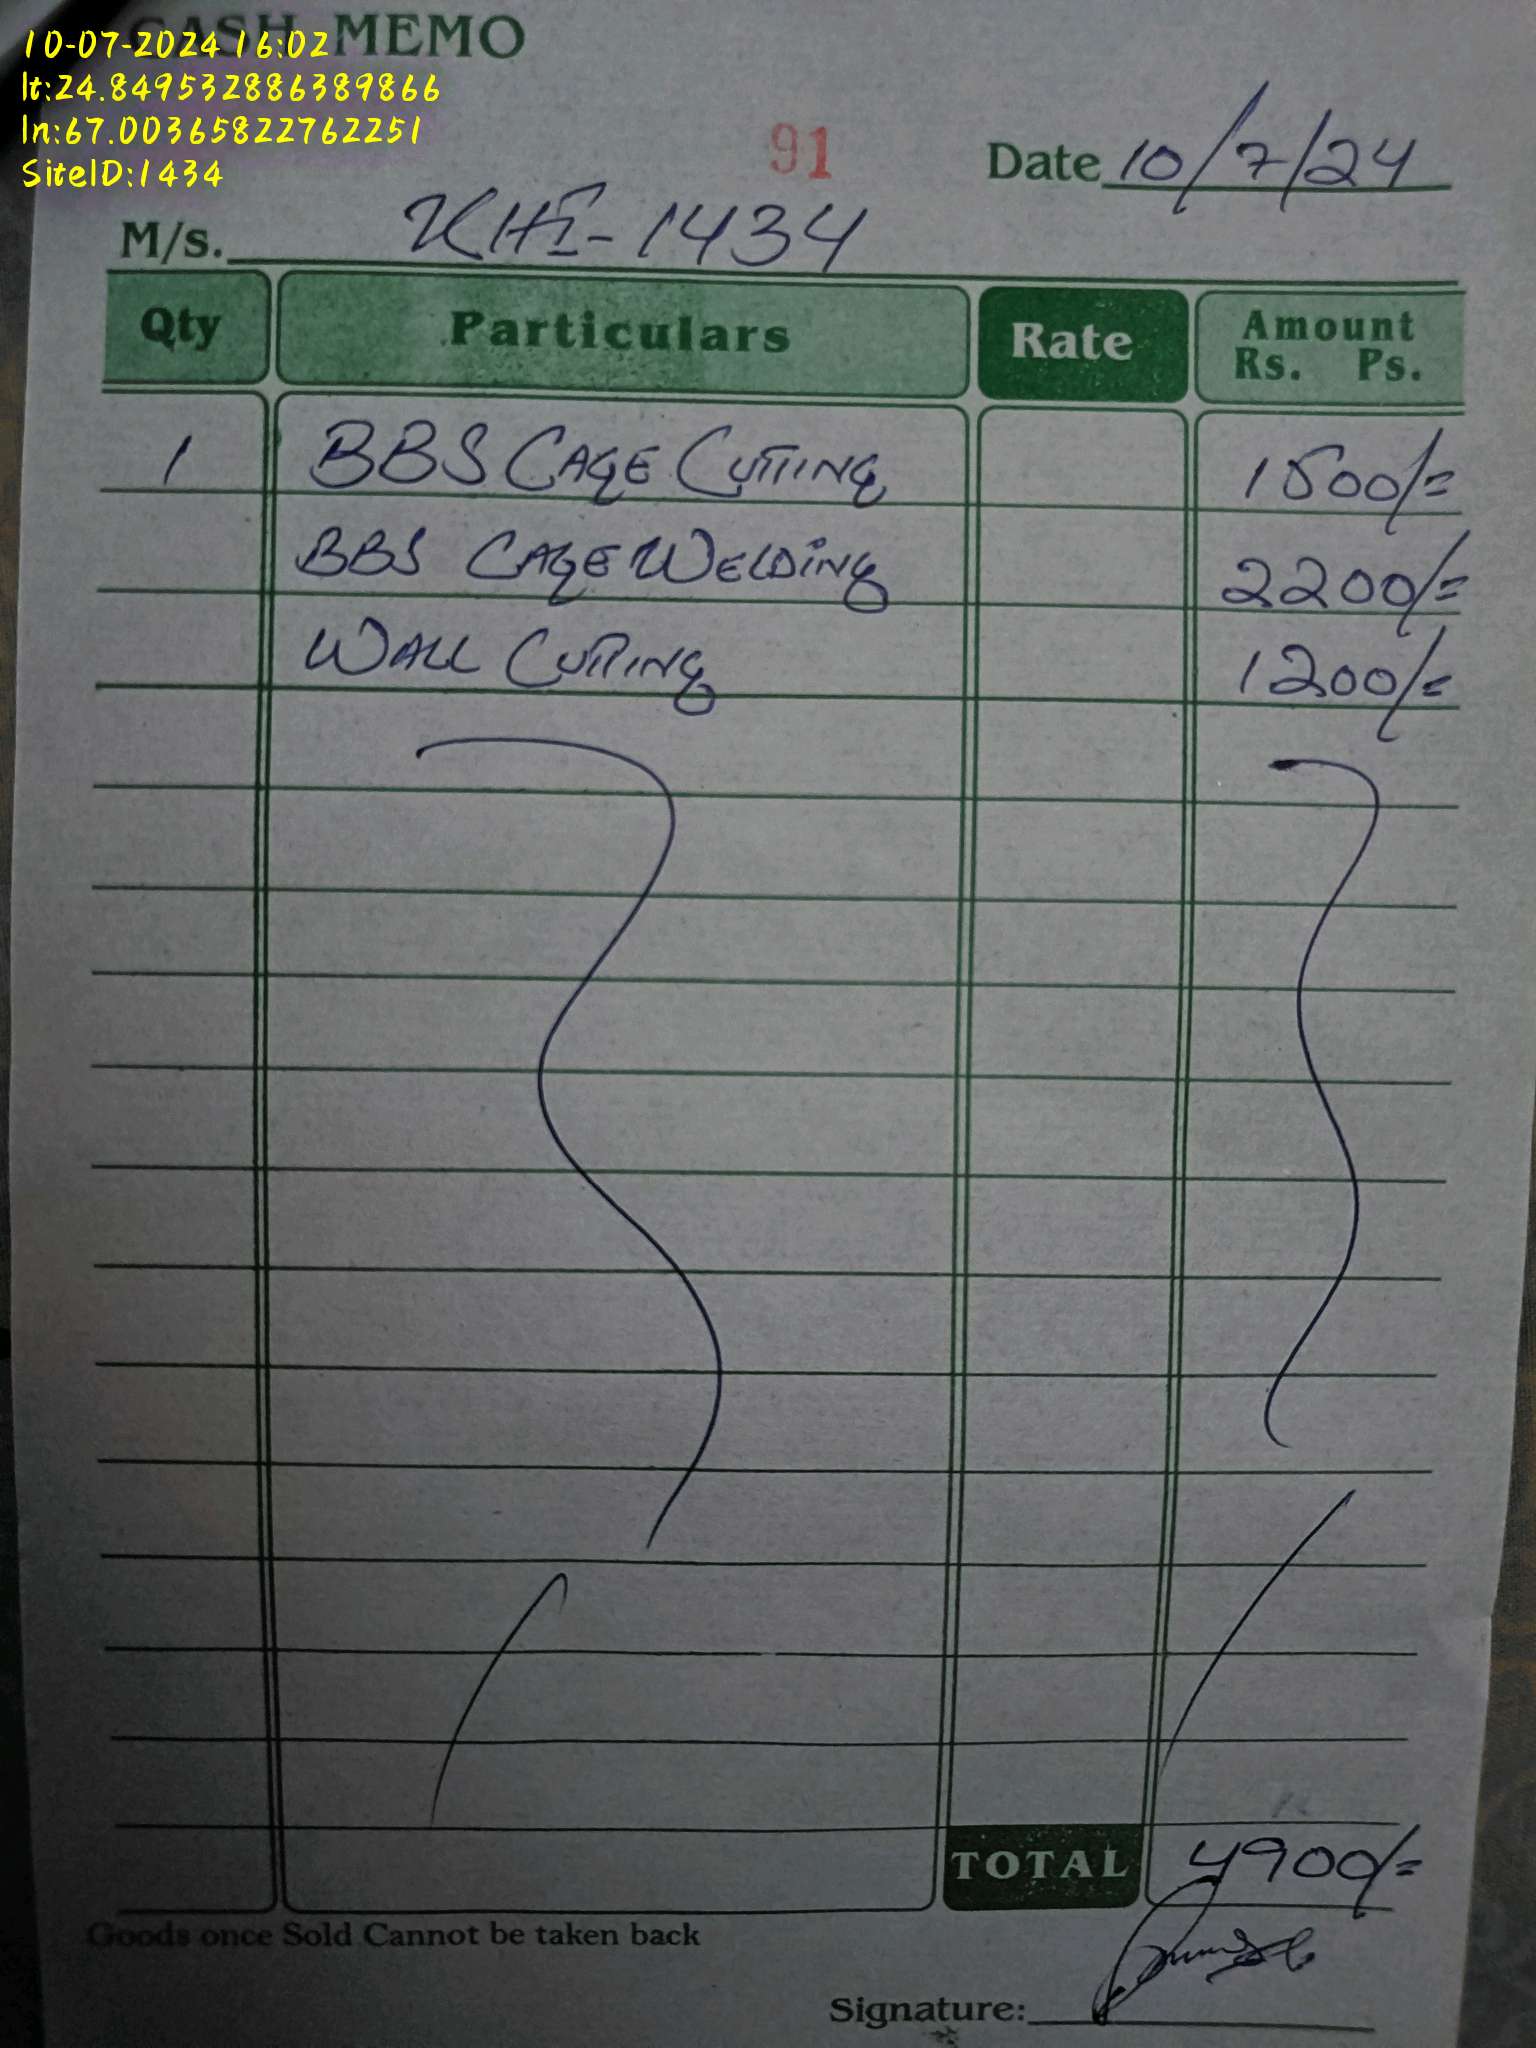 CASH MEMO
10-07-2024 16:02
lt:24.849532886389866
ln:67.00365822762251
SiteID:1434
91
Date 10/7/24
M/s. KHI-1434
Qty Particulars Rate Amount Rs. Ps.
1 BBS CAGE CUTTING 1500/=
BBS CAGE WELDING 2200/=
WALL CUTTING 1200/=
TOTAL 4900/=
Goods once Sold Cannot be taken back
Signature: